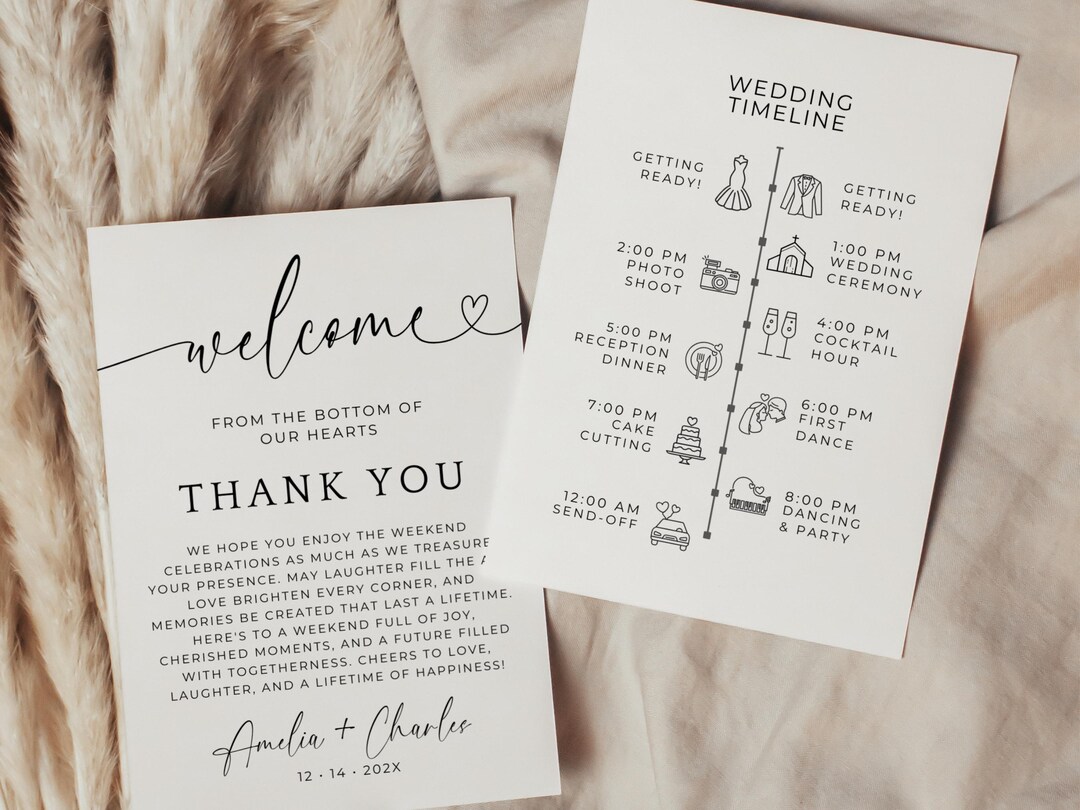 welcome
FROM THE BOTTOM OF
OUR HEARTS
THANK YOU
WE HOPE YOU ENJOY THE WEEKEND
CELEBRATIONS AS MUCH AS WE TREASURE
YOUR PRESENCE. MAY LAUGHTER FILL THE
LOVE BRIGHTEN EVERY CORNER, AND
MEMORIES BE CREATED THAT LAST A LIFETIME.
HERE'S TO A WEEKEND FULL OF JOY,
CHERISHED MOMENTS, AND A FUTURE FILLED
WITH TOGETHERNESS. CHEERS TO LOVE,
LAUGHTER, AND A LIFETIME OF HAPPINESS!
Amelia + Charles
12 • 14 • 202X
WEDDING
TIMELINE
GETTING
READY!
GETTING
READY!
1:00 PM
WEDDING
CEREMONY
2:00 PM
PHOTO
SHOOT
4:00 PM
COCKTAIL
HOUR
5:00 PM
RECEPTION
DINNER
6:00 PM
FIRST
DANCE
7:00 PM
CAKE
CUTTING
8:00 PM
DANCING
& PARTY
12:00 AM
SEND-OFF